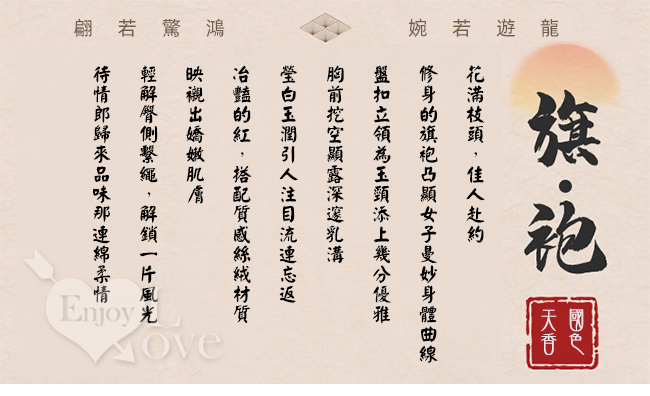 翩若驚鴻
婉若遊龍
旗·袍
國色
天香
花滿枝頭,佳人赴約
修身的旗袍凸顯女子曼妙身體曲線
盤扣立領為玉頸添上幾分優雅
胸前挖空顯露深邃乳溝
瑩白玉潤引人注目流連忘返
冶豔的紅,搭配質感絲絨材質
映襯出嬌嫩肌膚
輕解臀側繫繩,解鎖一片風光
待情郎歸來品味那連綿柔情
Enjoy
Love